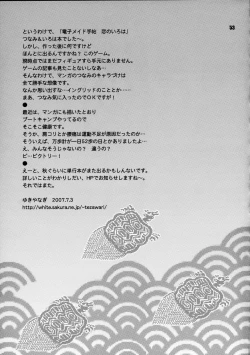 53
というわけで、「電子メイド手帖 恋のいろは」
つなみ＆いろは本でした～。
しかし、作った後に何ですけど
ほんとに出るんですかね？このゲーム。
現時点ではまだフィギュアすら手元にありません。
ゲームの記事も見たことないしなぁ。
そんなわけで、マンガのつなみのキャラづけは
全て勝手な想像です。
なんか思い出すな…イングリッドのこととか…
まあ、つなみ気に入ったのでOKですが！
●
最近は、マンガにも描いたとおり
ブートキャンプやってるので
そこそこ健康です。
あれか、肩コリとか腰痛は運動不足が原因だったのか…
そういえば、万歩計が一日52歩の日とかありましたよ。
え、みんなそうじゃないの？ 違うの？
ビークトリー！
●
えーと、秋くらいに単行本がまた出るかもしんないです。
詳しいことがわかりしだい、HPでお知らせしますね～。
それではまた。
ゆきやなぎ 2007.7.3
http://white.sakura.ne.jp/~tezawari/